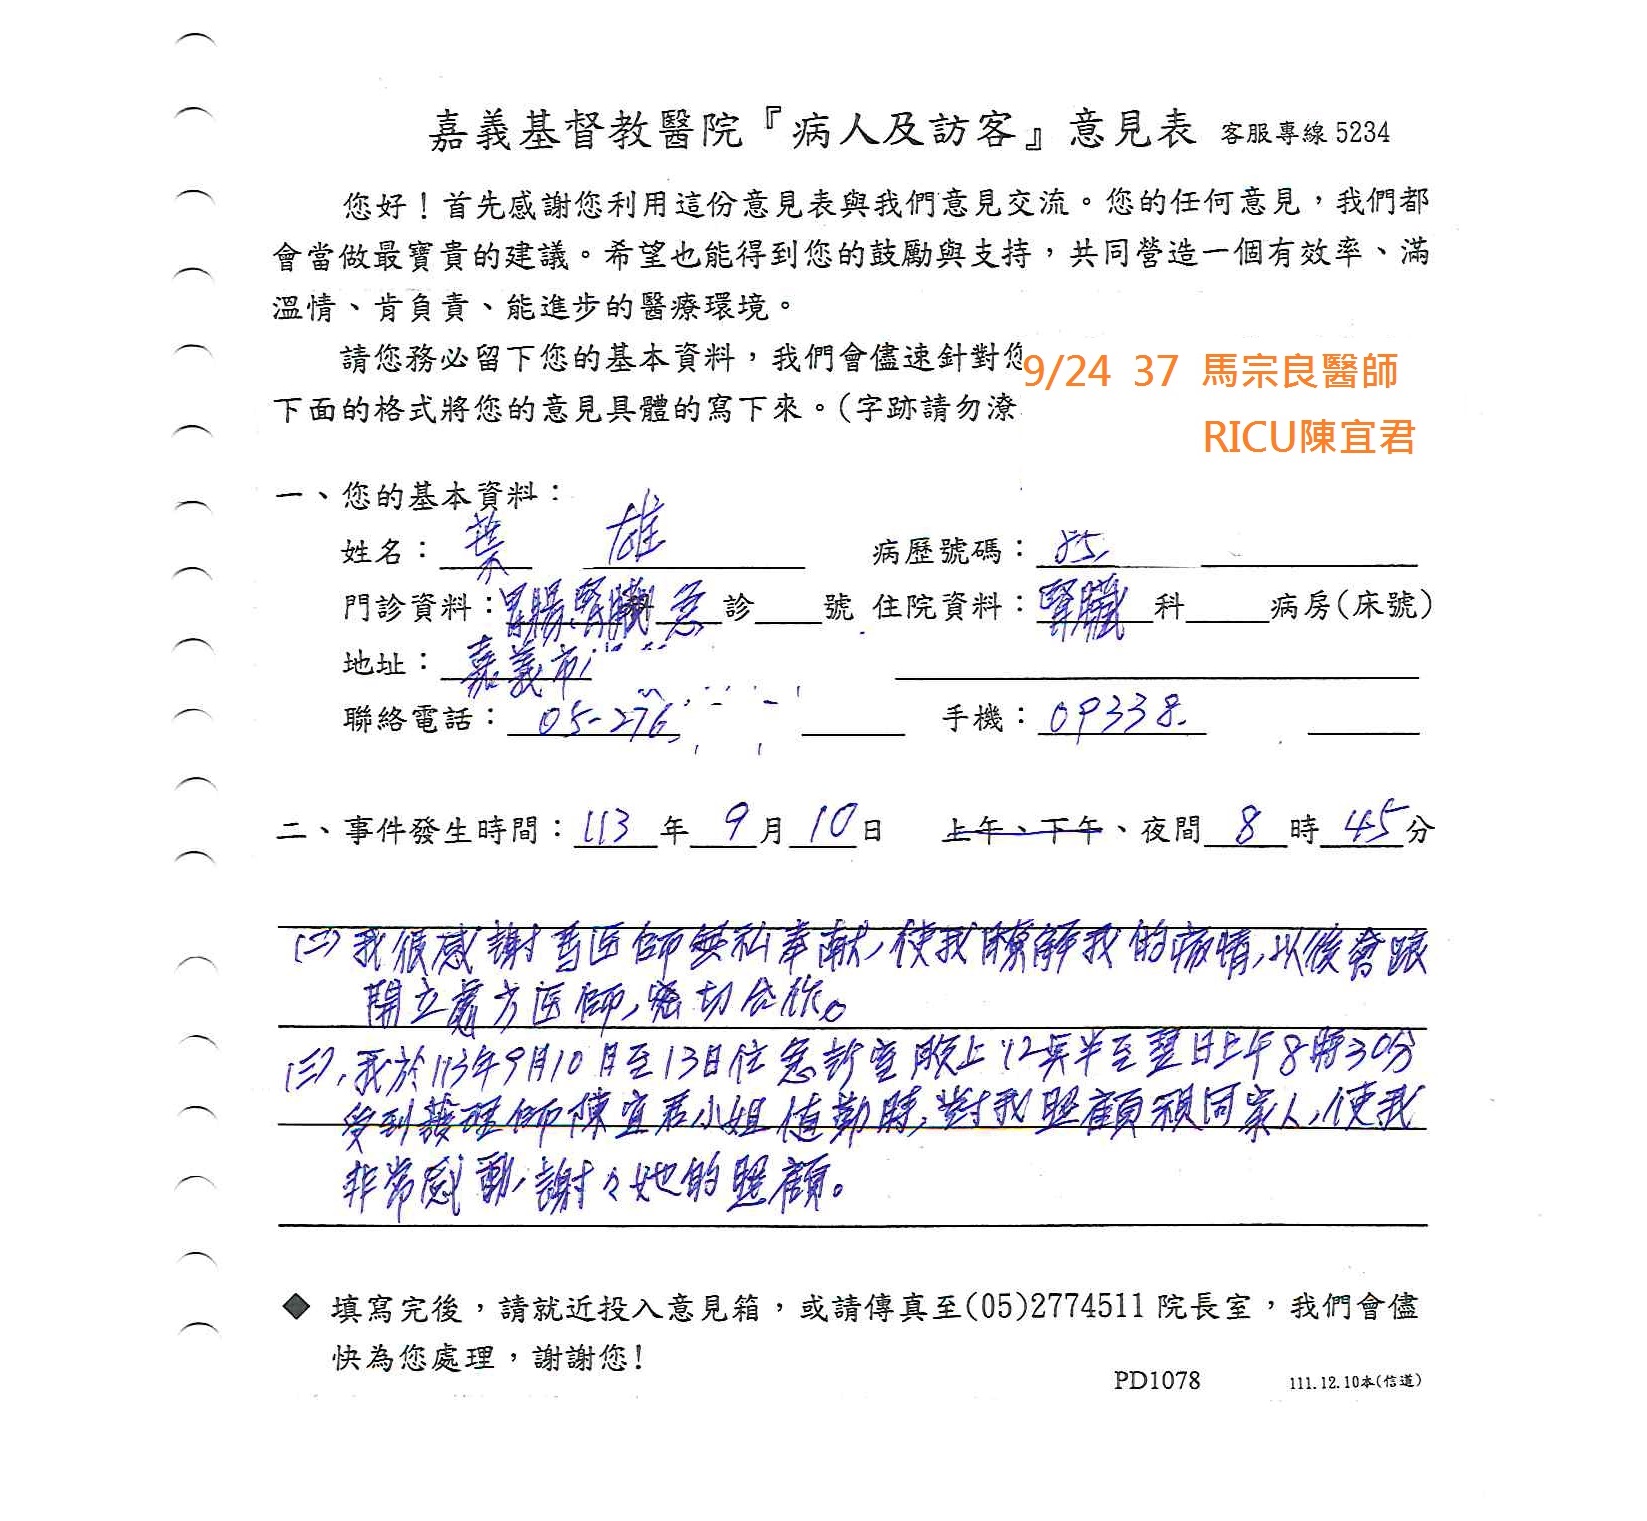 嘉義基督教醫院『病人及訪客』意見表 客服專線 5234
您好！首先感謝您利用這份意見表與我們意見交流。您的任何意見，我們都
會當做最寶貴的建議。希望也能得到您的鼓勵與支持，共同營造一個有效率、滿
溫情、肯負責、能進步的醫療環境。
請您務必留下您的基本資料，我們會儘速針對您
9/24 37 馬宗良醫師
下面的格式將您的意見具體的寫下來。（字跡請勿潦
RICU陳宜君
一、您的基本資料：
姓名：葉 雄 病歷號碼：85
門診資料：胃腸、腎臟科 急診 號 住院資料：腎臟科 病房（床號）
地址：嘉義市
聯絡電話：05-276 手機：09338
二、事件發生時間：113年9月10日 上午、下午、夜間8時45分
(二)我很感謝馬医師無私奉献,使我瞭解我的病情,以後會跟
開立處方医師,密切合作。
(三),我於113年9月10日至13日住急診室晚上12點半至翌日上午8時30分
受到護理師陳宜君小姐值勤時,對我照顧視同家人,使我
非常感動,謝々她的照顧。
◆ 填寫完後，請就近投入意見箱，或請傳真至(05)2774511 院長室，我們會儘
快為您處理，謝謝您！
PD1078 111.12.10本(信道)